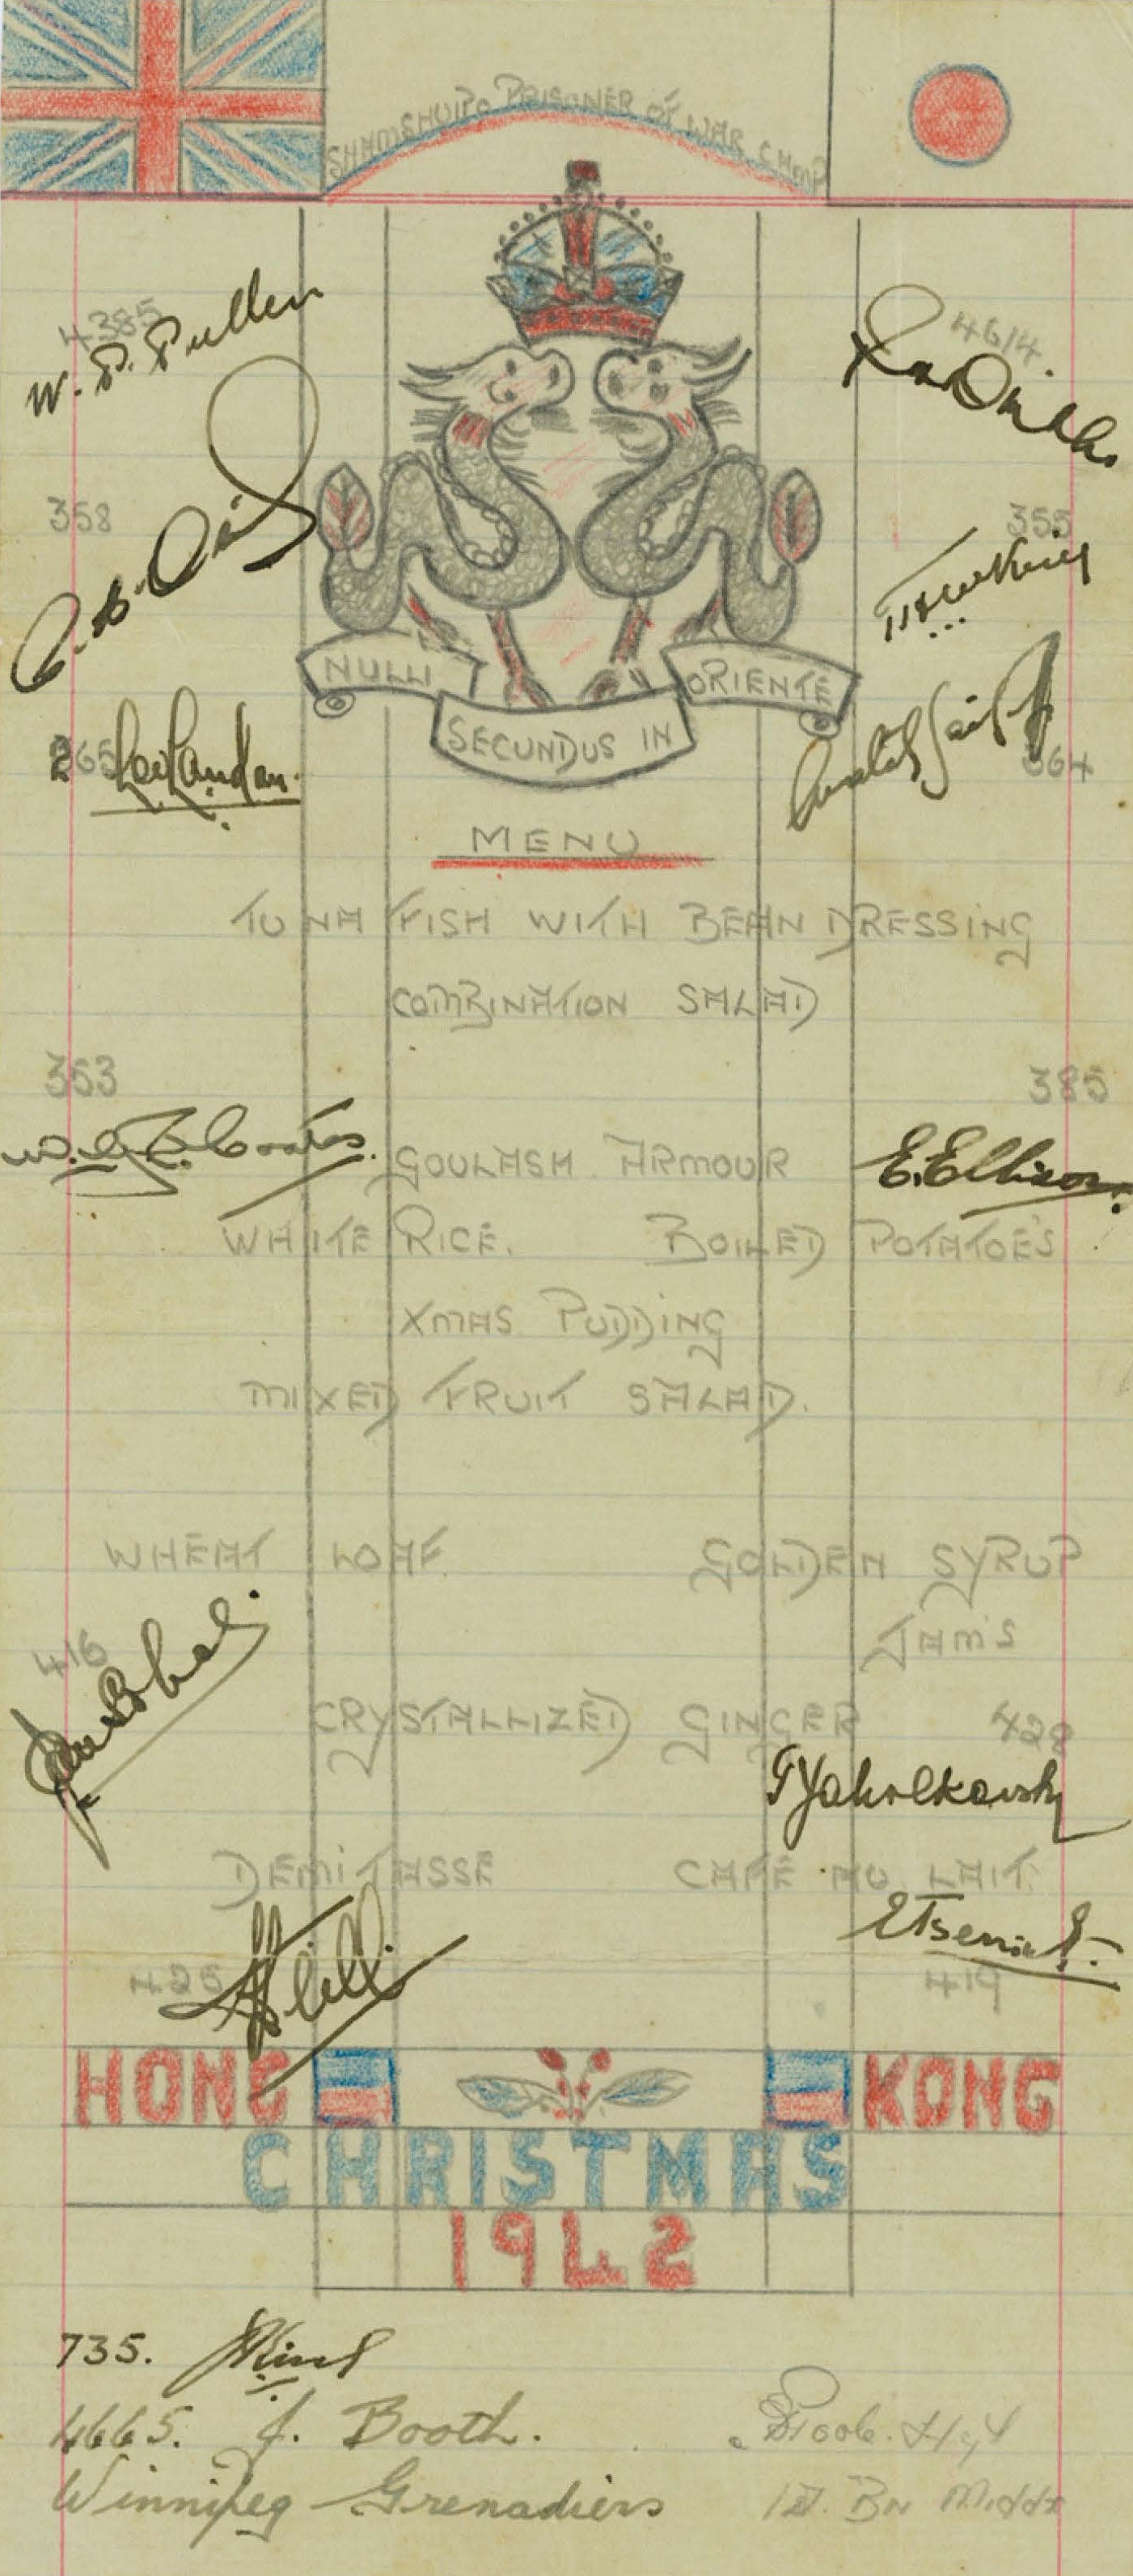 SHAMSHUIPO PRISONER OF WAR CAMP
4385
W. P. Pullen
4614
358
355
NULLI SECUNDUS IN ORIENTE
265
364
MENU
TUNA FISH WITH BEAN DRESSING
COMBINATION SALAD
353
385
E. Ellison
GOULASH ARMOUR
WHITE RICE. BOILED POTATOE'S
XMAS PUDDING
MIXED FRUIT SALAD.
WHEAT LOAF GOLDEN SYRUP
JAM'S
416
CRYSTALLIZED GINGER
428
G Yaholkovsky
DEMI TASSE CAFE AU LAIT.
425
419
HONG KONG
CHRISTMAS
1942
735.
4665. J. Booth.
Winnipeg Grenadiers
1st. Bn Middx